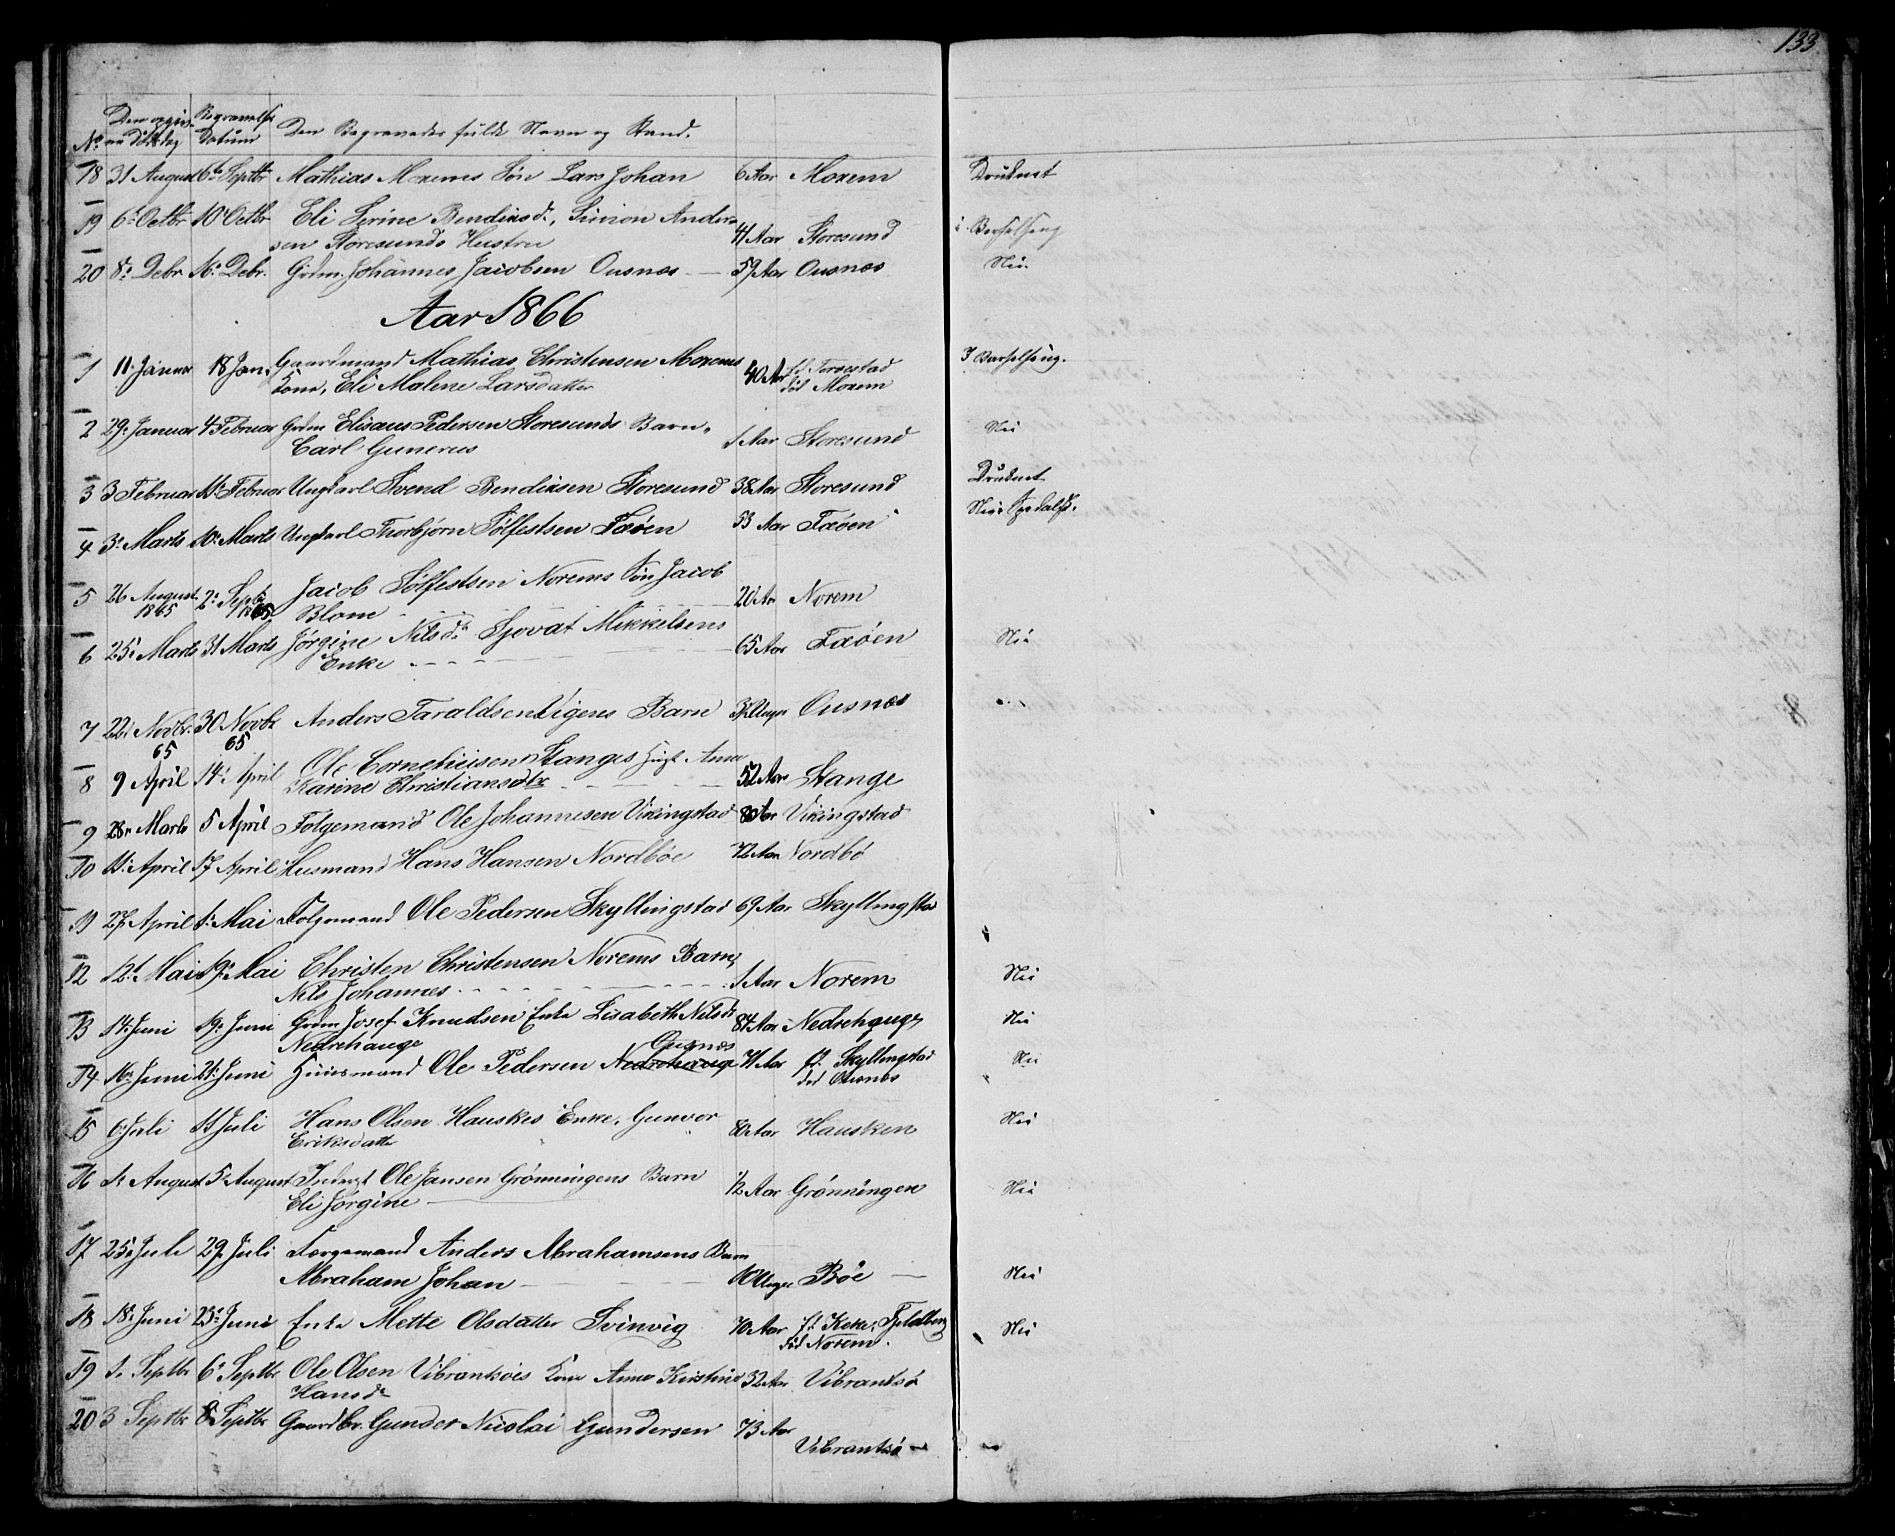 133
No Den opgivne Dödsdag Begravelses Datum Den Begravedes fulde Navn og Stand.
18 31 August 6te Septbr Mathias Norems Søn Lars Johan 6 Aar Norem Druknet
19 6te Octbr 10 Octbr Eli Serine Bendiksd., Simon Ander-
sen Storesunds Hustru 41 Aar Storesund i Barselseng
20 8de Debr. 16de Debr. Grdm. Johannes Jacobsen Ousnes 59 Aar Ousnes Nei
Aar 1866
1 11 Januar 18 Jan. Gaardmand Mathias Christensen Norems 40 Aar fd. Torvestad I Barselseng.
Kone, Eli Malene Larsdatter död Norem
2 29 Januar 4 Februar Grdm Elisæus Pedersen Storesunds Barn,
Carl Gunerus 1 Aar Storesund Nei
3 3 Februar 11 Februar Ungkarl Svend Bendiksen Storesund 38 Aar Storesund Druknet
4 3 Marts 10 Marts Ungkarl Thorbjørn Sølfestsen Fæøen 53 Aar Fæøen Nei Spedalsk.
5 26 August 1865 2 Septb 1865 Jacob Sølfestsen Norems Søn Jacob
Blom 20 Aar Norem
6 25 Marts 31 Marts Jørgine Nilsd. Sjovat Mikkelsens
Enke 65 Aar Fæøen Nei
7 22 Novbr. 65 30 Novbr 65 Anders Taraldsen Vigens Barn 3 Uger Ousnes
8 9 April 14 April Ole Corneliusen Stanges Anne
Karine Christiansdtr 52 Aar Stange
9 28 Marts 5 April Folgemand Ole Johannesen Vikingstad 80 Aar Vikingstad
10 11 April 17 April Husmand Hans Hansen Nordbøe 72 Aar Nordbö
11 27 April 1 Mai Folgemand Ole Pedersen Skyllingstad 69 Aar Skyllingstad
12 12t Mai 19 Mai Christen Christensen Norems Barn,
Nils Johannes 1 Aar Norem Nei
13 14 Juni 19 Juni Grdm Josef Knudsen Enke Lisabeth Nilsd. 84 Aar Nedrehauge Nei
Nedrehauge
Ousnes
14 16 Juni 21 Juni Huusmand Ole Pedersen Nedrehauge 71 Aar fd. Skyllingstad Nei
död Ousnes
15 6 Juli 11 Juli Hans Olsen Hauskes Enke, Gunvor
Eriksdatter 80 Aar Hausken Nei
16 1 August 5 August Inderst Ole Jansen Grönningens Barn
Eli Jørgine 1/2 Aar Grönningen Nei
17 25 Juli 29 Juli Færgemand Anders Abrahamsens Barn
Abraham Johan 10 Uger Bøe Nei
18 18 Juni 23 Juni Enke Mette Olsdatter Svinvig 70 Aar fd. Fjeldberg Nei
död Norem.
19 1 Septbr 6 Septbr Ole Olsen Vibrandsøes Kone Anne Kirstine 32 Aar Vibrandsö
Hansd.
20 3 Septbr 8 Septbr Gaardbr. Gunder Nicolai Gundersen 73 Aar
Vibrandsö